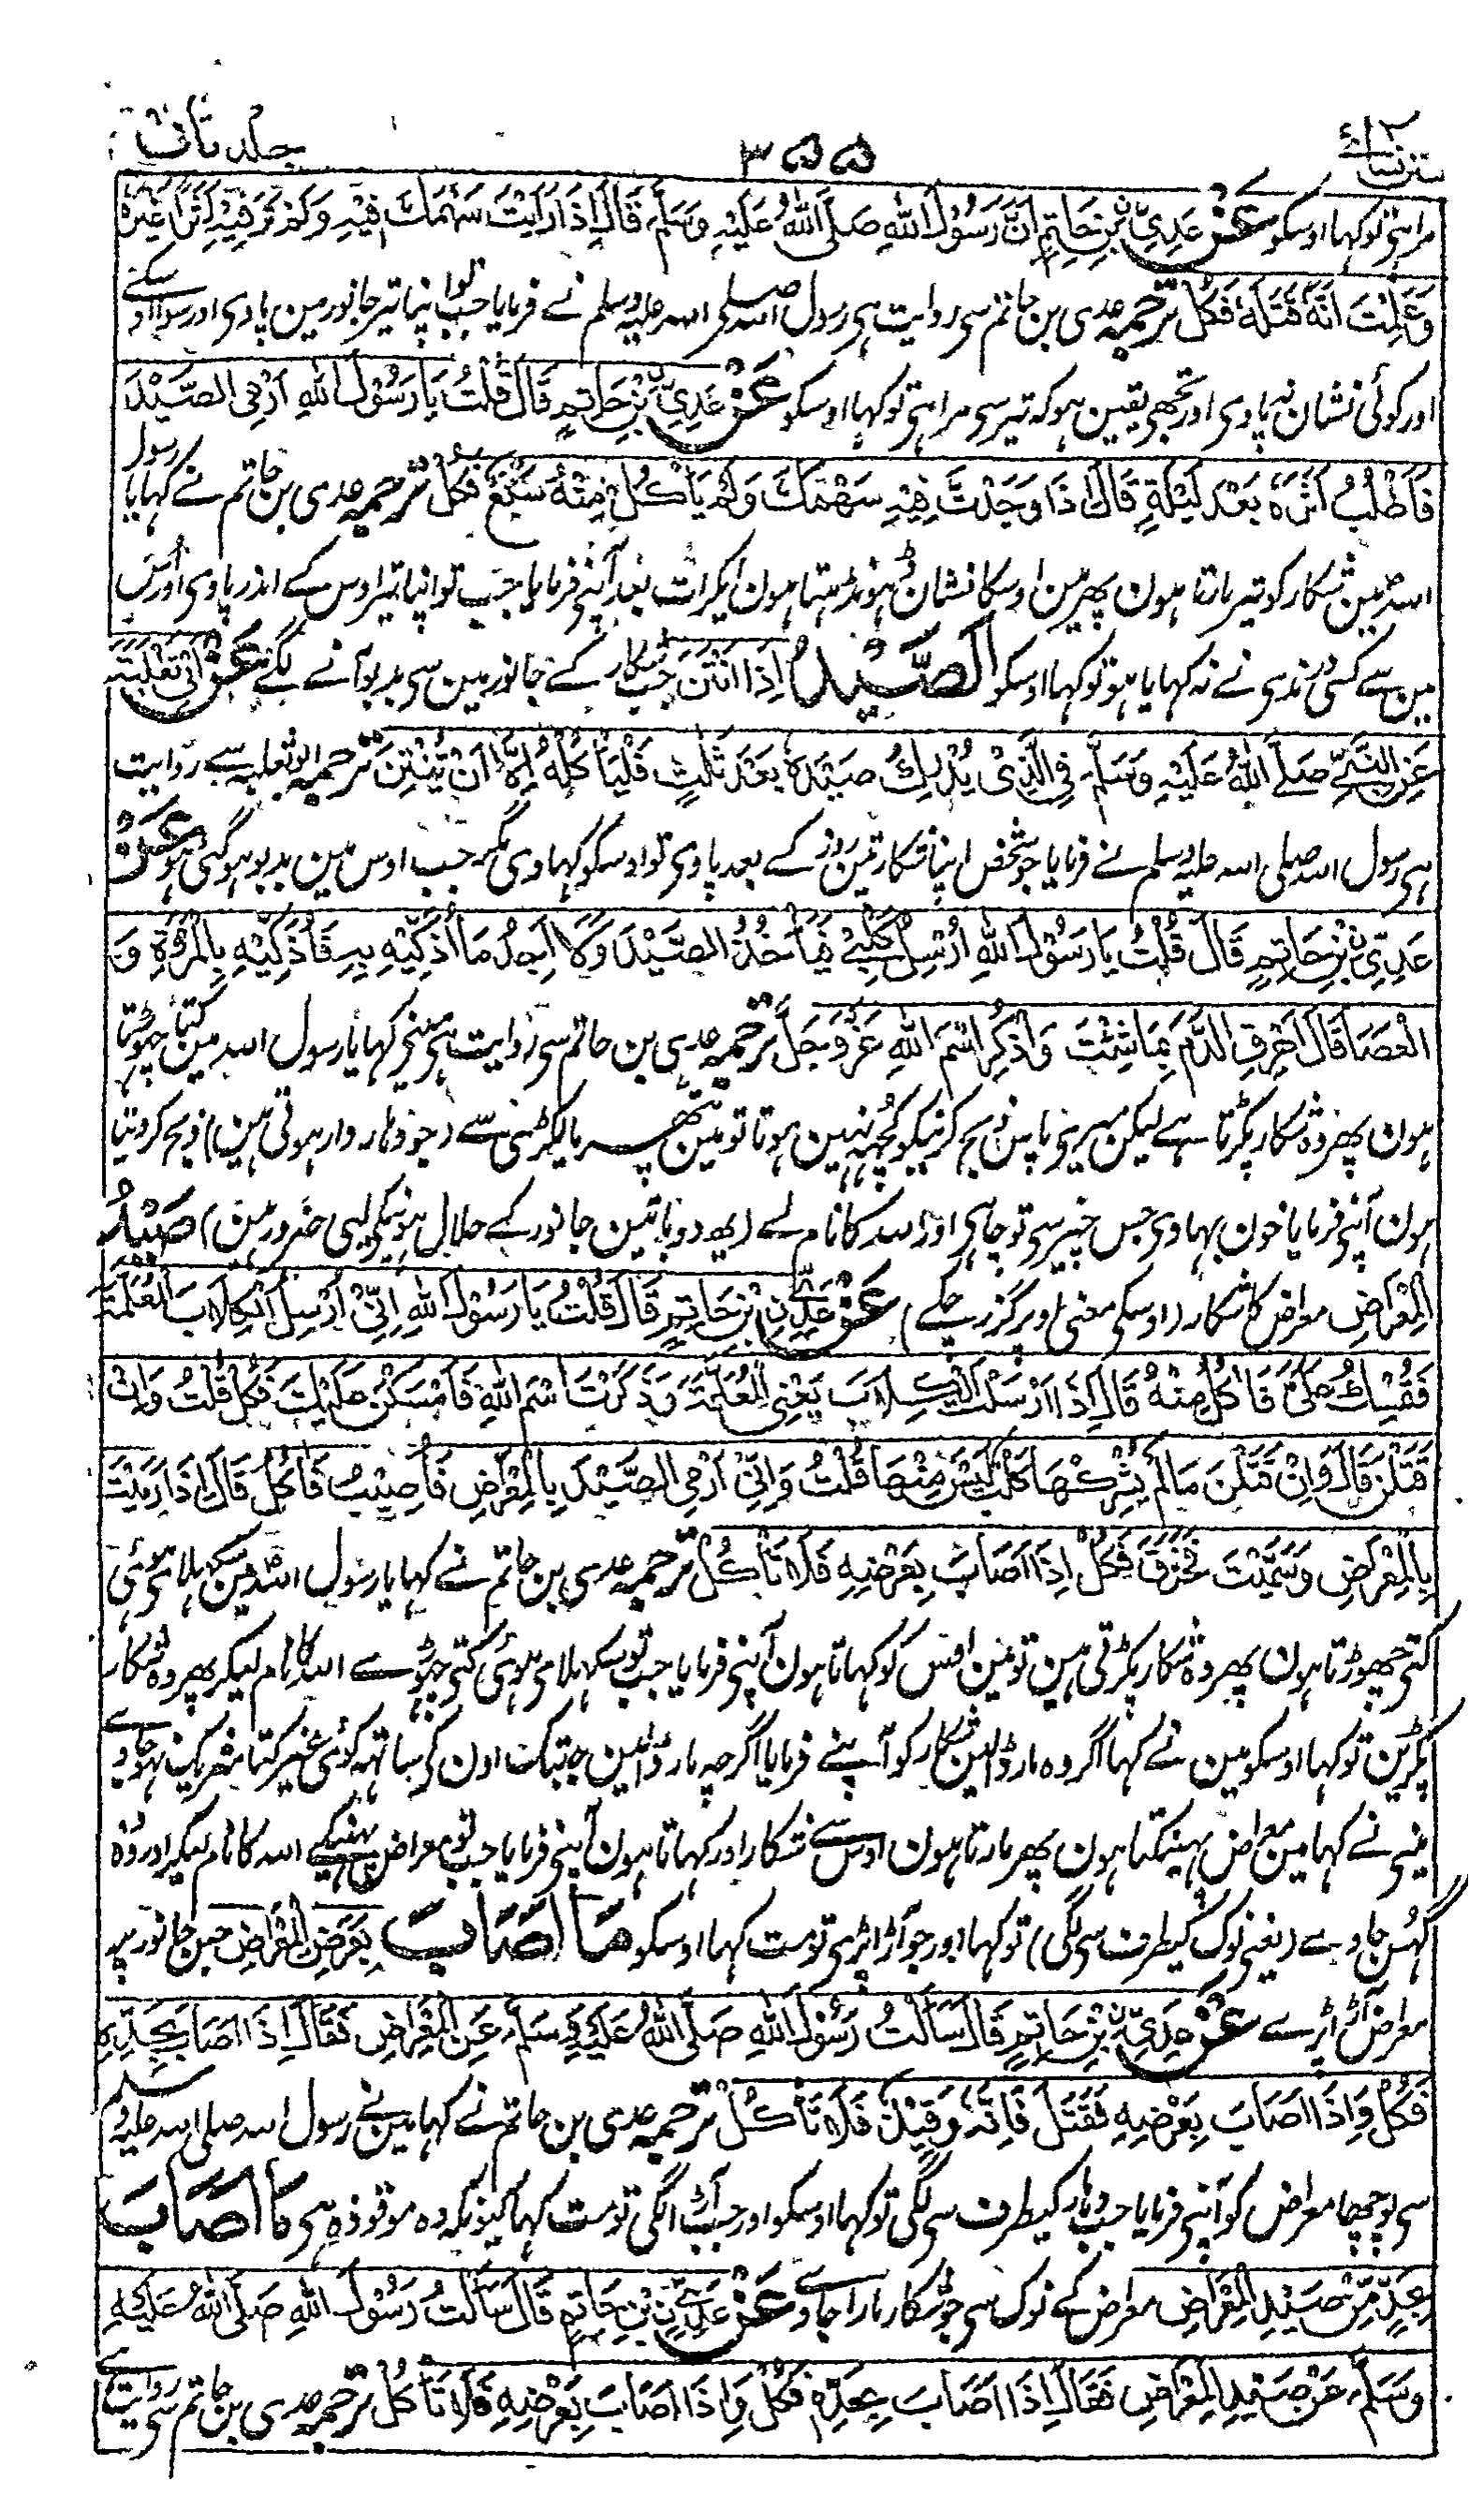 سنن نسائی ۳۵۵ جلد ثانی
مراہی تو کہا اوسکو عَنْ عَدِيِّ بْنِ حَاتِمٍ اَنَّ رَسُوْلَ اللهِ صَلَّى اللهُ عَلَيْهِ وَسَلَّمَ قَالَ اِذَا رَاَيْتَ سَهْمَكَ فِيْهِ وَلَمْ تَرَ فِيْهِ اَثَرًا غَيْرَهٗ
وَعَلِمْتَ اَنَّهٗ قَتَلَهٗ فَكُلْ ترجمہ عدی بن حاتم سی روایت ہی رسول اللہ صلی اللہ علیہ وسلم نے فرمایا جب تو اپنا تیر جانور مین پاوی اور سوا اوسکے
اور کوئی نشان نہ پاوی اور تجھی یقین ہو کہ تیر سی مرا ہی تو کہا اوسکو عَنْ عَدِيِّ بْنِ حَاتِمٍ قَالَ قُلْتُ يَا رَسُوْلَ اللهِ اَرْمِي الصَّيْدَ
فَاَطْلُبُ اَثَرَهٗ بَعْدَ لَيْلَةٍ قَالَ اِذَا وَجَدْتَ فِيْهِ سَهْمَكَ وَلَمْ يَاْكُلْ مِنْهُ سَبُعٌ فَكُلْ ترجمہ عدی بن حاتم نے کہا یا رسول
اللہ مین شکار کو تیر مارتا ہون پھر مین اوسکا نشان ڈہونڈہتا ہون ایکرات بعد آپنی فرمایا جب تو اپنا تیر اوس کے اندر پاوی اور اس
مین سے کسی درندی نے نہ کہایا ہو تو کہا اوسکو الصَّيْدُ اِذَا اَنْتَنَ جب شکار کے جانور مین سی بدبو آنے لگے عَنْ اَبِي ثَعْلَبَةَ
عَنِ النَّبِيِّ صَلَّى اللهُ عَلَيْهِ وَسَلَّمَ فِي الَّذِيْ يُدْرِكُ صَيْدَهٗ بَعْدَ ثَلٰثٍ فَلْيَاْكُلْهُ اِلَّا اَنْ يُّنْتِنَ ترجمہ ابو ثعلبہ سے روایت
ہی رسول اللہ صلی اللہ علیہ وسلم نے فرمایا جو شخص اپنا شکار تین روز کے بعد پاوی تو اوسکو کہاوی مگر جب اوس مین بدبو ہو گئی ہو عَنْ
عَدِيِّ بْنِ حَاتِمٍ قَالَ قُلْتُ يَا رَسُوْلَ اللهِ اُرْسِلُ كَلْبِيْ فَيَاْخُذُ الصَّيْدَ وَلَا اَجِدُ مَا اُذَكِّيْهِ بِهٖ فَاُذَكِّيْهِ بِالْمَرْوَةِ وَ
الْعَصَا قَالَ اَهْرِقِ الدَّمَ بِمَا شِئْتَ وَاذْكُرِ اسْمَ اللهِ عَزَّ وَجَلَّ ترجمہ عدی بن حاتم سی روایت ہی مینی کہا یا رسول اللہ مین کتا چھوڑتا
ہون پھر وہ شکار پکڑتا ہے لیکن میری پاس ذبح کرنیکو کچھ نہین ہوتا تو مین پتھر یا لکڑی سے (جو دھار دار ہوتی ہین) ذبح کر دیتا
ہون آپنی فرمایا خون بہاوی جس چیز سی تو چاہی اور اللہ کا نام لے (یہ دو باتین جانور کے حلال ہونیکی لیی ضرور ہین) صَيْدُ
الْمِعْرَاضِ معراض کا شکار (اوسکی معنی اوپر گزر چکے) عَنْ عَدِيِّ بْنِ حَاتِمٍ قَالَ قُلْتُ يَا رَسُوْلَ اللهِ اِنِّيْ اُرْسِلُ الْكِلَابَ الْمُعَلَّمَةَ
فَتُمْسِكُ عَلَيَّ فَاٰكُلُ مِنْهُ قَالَ اِذَا اَرْسَلْتَ الْكِلَابَ يَعْنِي الْمُعَلَّمَةَ وَذَكَرْتَ اسْمَ اللهِ فَاَمْسَكْنَ عَلَيْكَ فَكُلْ قُلْتُ وَاِنْ
قَتَلْنَ قَالَ وَاِنْ قَتَلْنَ مَا لَمْ يَشْرَكْهَا كَلْبٌ لَيْسَ مِنْهَا قُلْتُ وَاِنِّيْ اَرْمِي الصَّيْدَ بِالْمِعْرَاضِ فَاُصِيْبُ فَاٰكُلُ قَالَ اِذَا رَمَيْتَ
بِالْمِعْرَاضِ وَسَمَّيْتَ فَخَزَقَ فَكُلْ اِذَا اَصَابَ بِعَرْضِهٖ فَلَا تَاْكُلْ ترجمہ عدی بن حاتم نے کہا یا رسول اللہ مین سکھلائی ہوئی
کتی چھوڑتا ہون پھر وہ شکار پکڑتی ہین تو مین اوس کو کہاتا ہون آپنی فرمایا جب تو سکھلائی ہوئی کتی چھوڑے اللہ کا نام لیکر پھر وہ شکار
پکڑین تو کہا اوسکو مین نے کہا اگر وہ مار ڈالین شکار کو آپنے فرمایا اگرچہ مار ڈالین جبتک اون کی ساتھ کوئی غیر کتا شریک نہو جاوے
مینی نے کہا مین معراض پہینکتا ہون پھر مارتا ہون اوس سے شکار اور کہاتا ہون آپنی فرمایا جب تو معراض پہینکے اللہ کا نام لیکر اور وہ
گھس جاوے (یعنی نوک کیطرف سی لگی) تو کہا اور جو آڑا پڑی تو مت کہا اوسکو مَا اَصَابَ بِعَرْضِ الْمِعْرَاضِ جس جانور پر
معراض آڑ پڑے عَنْ عَدِيِّ بْنِ حَاتِمٍ قَالَ سَاَلْتُ رَسُوْلَ اللهِ صَلَّى اللهُ عَلَيْهِ وَسَلَّمَ عَنِ الْمِعْرَاضِ فَقَالَ اِذَا اَصَابَ بِحَدِّهٖ
فَكُلْ وَاِذَا اَصَابَ بِعَرْضِهٖ فَقَتَلَ فَاِنَّهٗ وَقِيْذٌ فَلَا تَاْكُلْ ترجمہ عدی بن حاتم نے کہا مینے رسول اللہ صلی اللہ علیہ وسلم
سی پوچھا معراض کو آپنی فرمایا جب دھار کیطرف سی لگی تو کہا اوسکو اور جب آڑی لگی تو مت کہا کیونکہ وہ موقوذہ ہی مَا اَصَابَ
بِحَدٍّ مِّنْ صَيْدِ الْمِعْرَاضِ معراض کے نوک سی جو شکار مارا جاوے عَنْ عَدِيِّ بْنِ حَاتِمٍ قَالَ سَاَلْتُ رَسُوْلَ اللهِ صَلَّى اللهُ عَلَيْهِ
وَسَلَّمَ عَنْ صَيْدِ الْمِعْرَاضِ فَقَالَ اِذَا اَصَابَ بِحَدِّهٖ فَكُلْ وَاِذَا اَصَابَ بِعَرْضِهٖ فَلَا تَاْكُلْ ترجمہ عدی بن حاتم سی روایت ہے